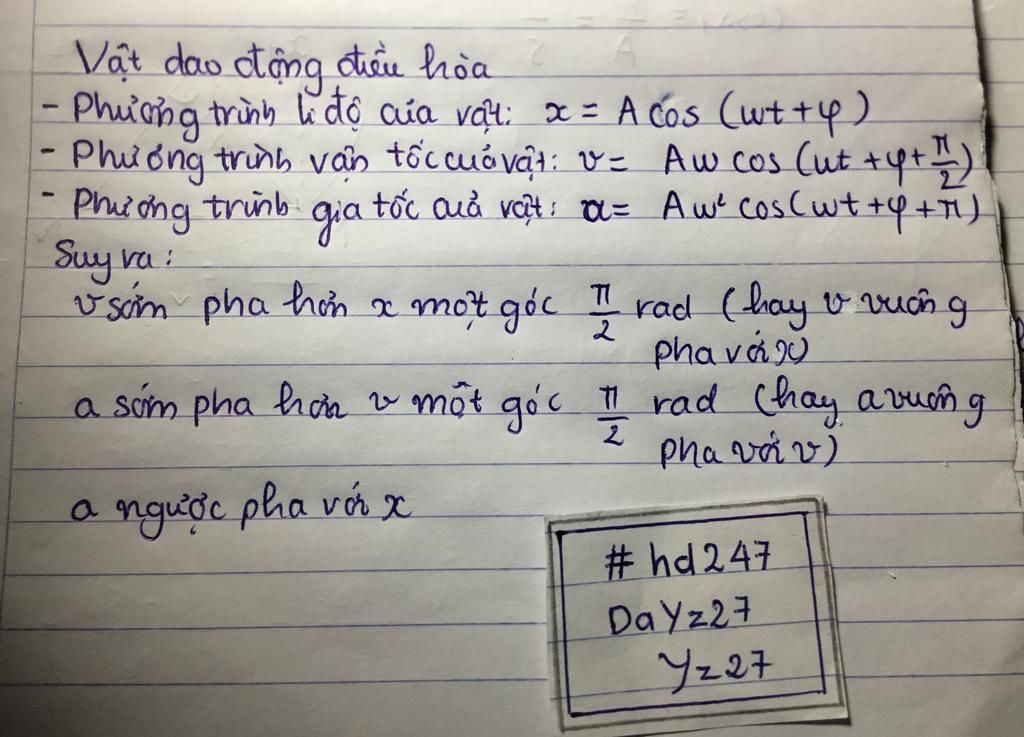 Vật dao động điều hòa
- Phương trình li độ của vật: x = A cos (ωt + φ)
- Phương trình vận tốc của vật: v = Aω cos (ωt + φ + π/2)
- Phương trình gia tốc của vật: a = Aω² cos(ωt + φ + π)
Suy ra:
v sớm pha hơn x một góc π/2 rad (hay v vuông
pha với x)
a sớm pha hơn v một góc π/2 rad (hay a vuông
pha với v)
a ngược pha với x
# hd247
DaYz27
Yz27